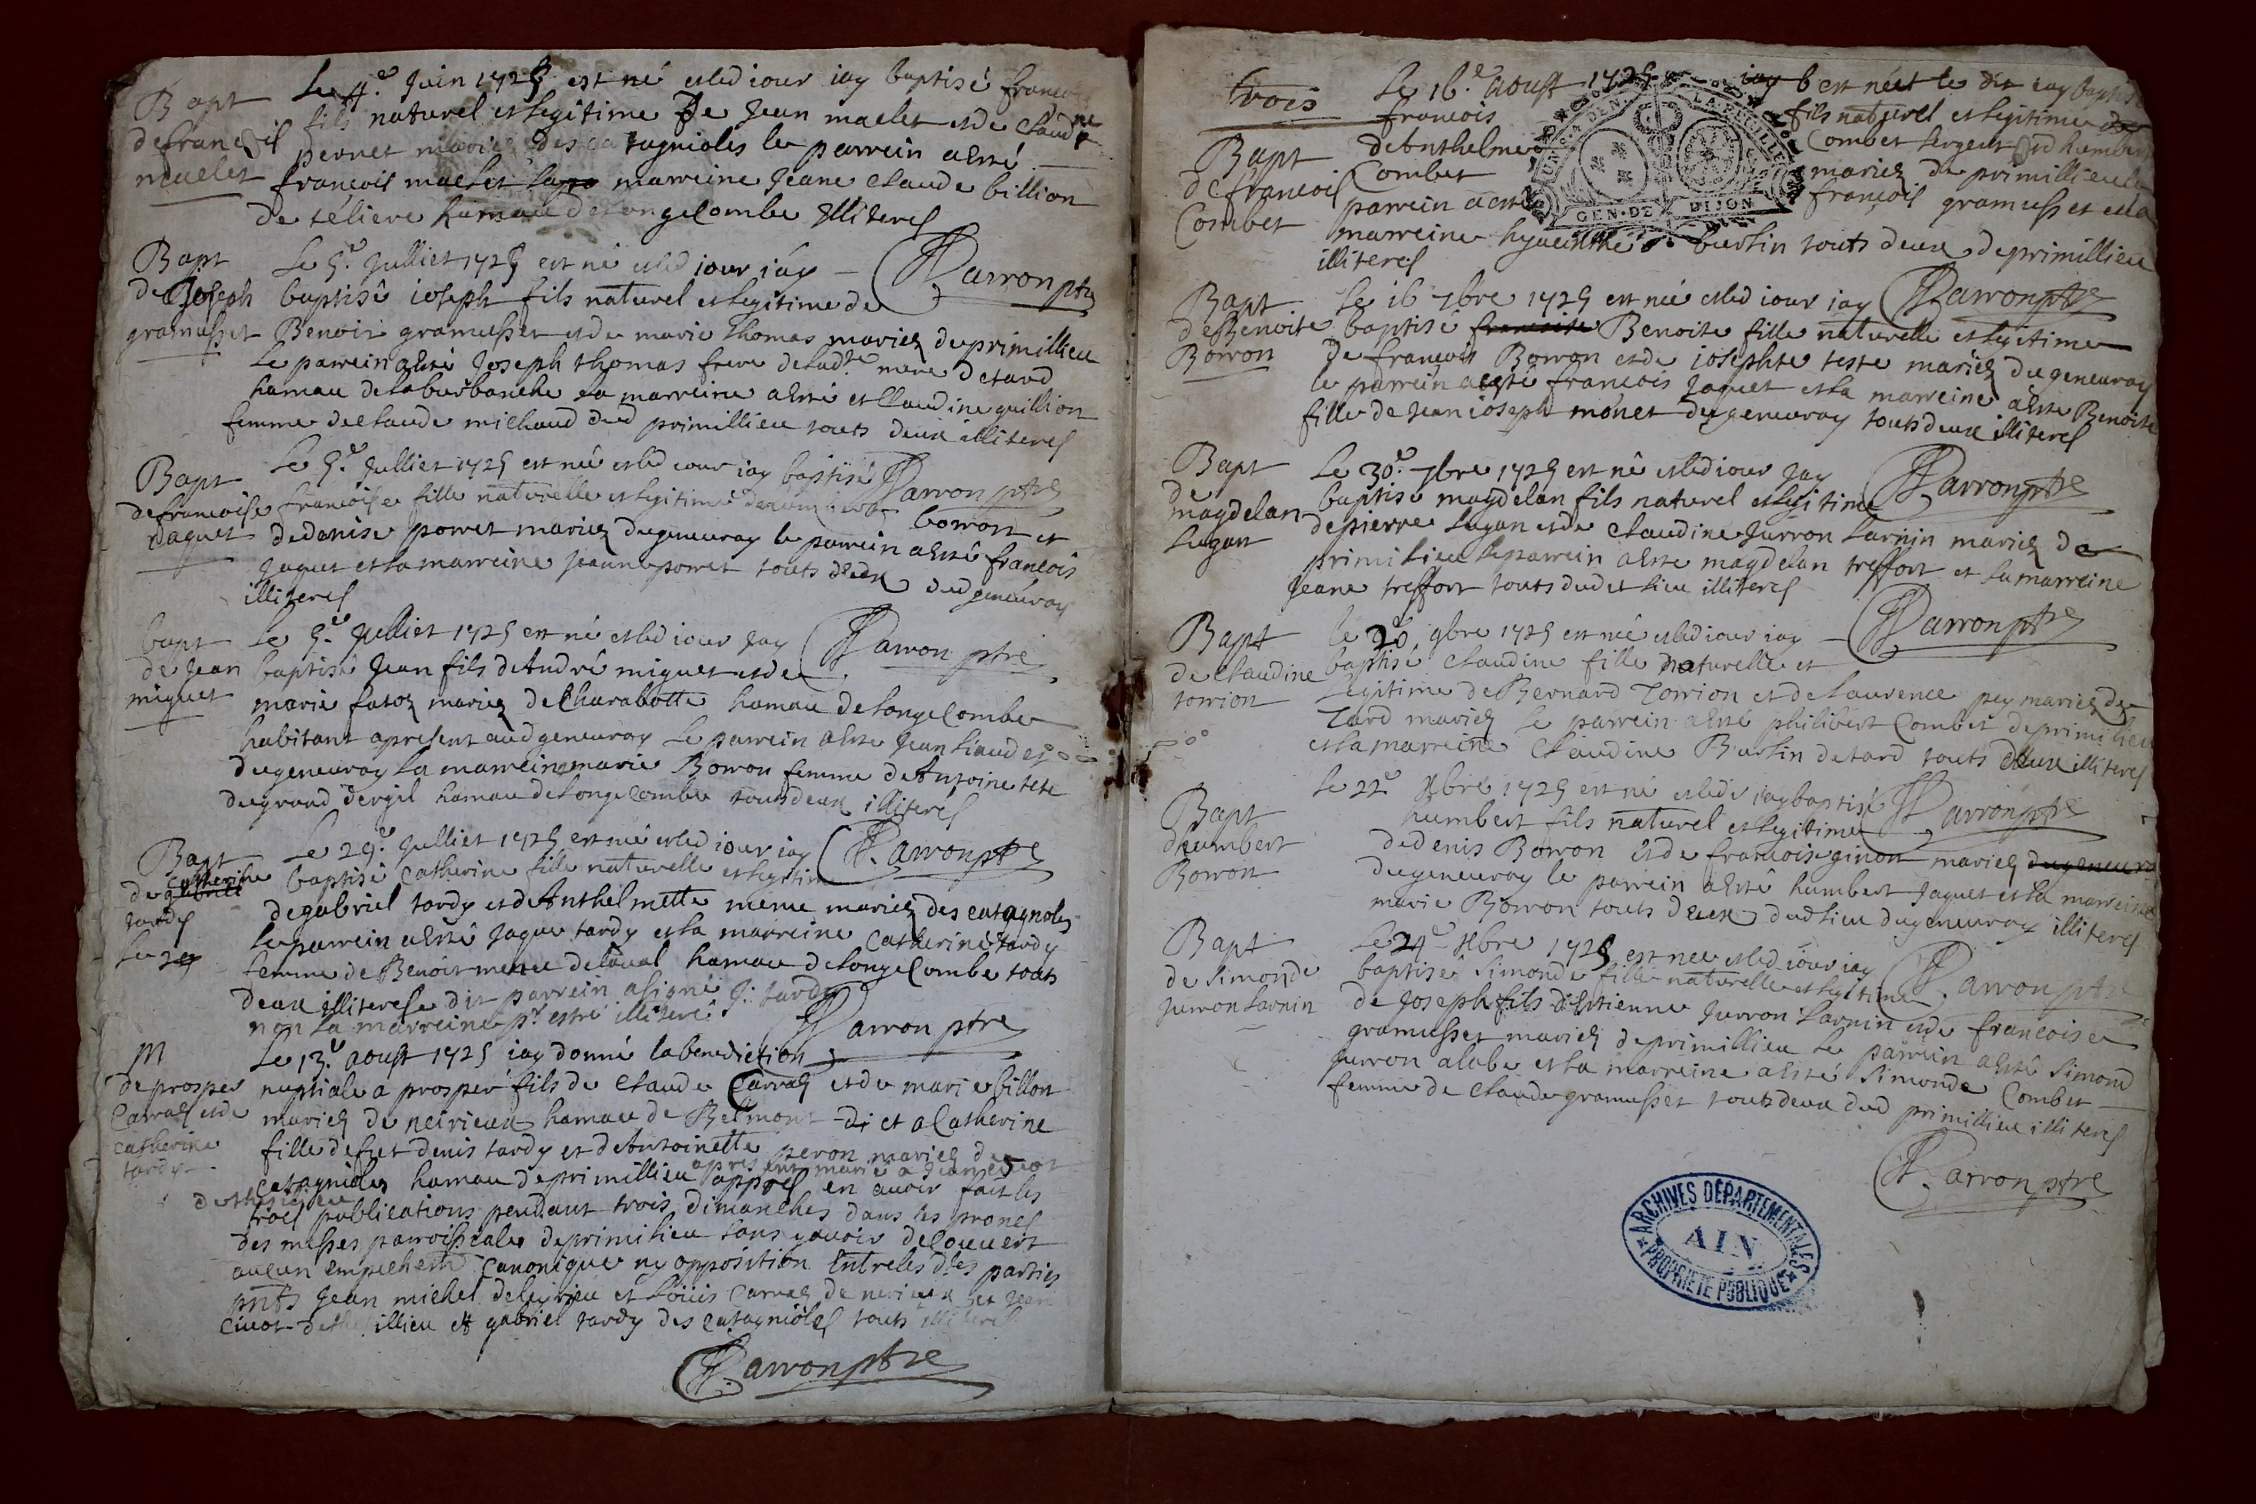 Bapt
de francois
maclet
Le 4.e Juin 1725 est né et led iour iay baptisé francois
fils naturel et legitime De Jean maclet et de Claudine
pernet mariez des catagnioles le parrein a esté
francois maclet marreine Jeane Claude billion
de hamau de longecombe illiteres
Bapt
de Joseph
gramusset
Le 5.e Julliet 1725 est né et led iour iay
Parron ptre
baptisé ioseph fils naturel et legitime de
Benoit gramusset et de marie thomas mariez de primillieu
Le parrein a esté Joseph thomas frere de lad.te mere de tard
hamau de la burbanche la marreine a esté Claudine guillion
femme de Claude michaud dud primillieu touts deux illiteres
Bapt
de francoise
Jaquet
Le 5.e Julliet 1725 est née et led iour iay baptisé
Parron ptre
francoise fille naturelle et legitime
de denise porret mariez du geneuray le parrein a esté francois
Jaquet et la marreine Jeanne porret touts deux dud geneuray
illiteres
bapt
de Jean
miguet
Le 5.e Julliet 1725 est né et led iour Jay
Parron ptre
baptisé Jean fils de André miguet et de
marie fatoz mariez de Charabotte hamau de longecombe
habitant apresent aud geneuray Le parrein a esté Jean
du geneuray la marreine marie Borron femme de Antoine tete
du grand dergil hamau de longecombe touts deux illiteres
Bapt
de gabriel catherine
tardy
Le 29.e Julliet 1725 est née et led iour iay
Parron ptre
baptisé Catherine fille naturelle et legitime
de gabriel tardy et de Anthelmette menu mariez des catagnoles
Le parrein a esté Jaque tardy et la marreine Catherine tardy
femme de Benoit menu de laval hamau de longecombe touts
deux illiteres le dit parrein a signé J. tardy
non la marreine p.r estre illiteré
Parron ptre
M
de prosper
Carraz et de
catherine
tardy
Le 13.e aoust 1725 iay donné la benediction
nuptiale a prosper fils de Claude Carraz et de marie billon
mariez de neirieux hamau de Belmont et a Catherine
fille de feu denis tardy et de Antoinette peron mariez de
catagnioles hamau de primillieu appres en avoir fait les
trois publications pendant trois dimanches dans les prones
des messes parroissiales de primilieu sans y avoir decouvert
aucun empechem.t canonique ny opposition Entre les d.tes parties
pnts Jean michel et Louis Carraz de
gabriel tardy des catagnioles touts illiteres
Parron ptre
trois
GEN. DE DIJON
Bapt
de francois
Combet
Le 16.e aoust 1725 est né et le dit iay baptisé
francois fils naturel et legitime
de Anthelme Combet
Combet mariez de primillieu
parrein a esté françois gramusset et la
marreine hyacinthe burtin touts deux de primillieu
illiteres
Bapt
de Benoite
Borron
Le 16 7bre 1725 est née et led iour iay
Parron ptre
baptisé francoise Benoite fille naturelle et legitime
De francois Borron et de iosephte teste mariez du geneuray
le parrein a esté francois Jaquet et la marreine a esté Benoite
fille de Jean ioseph monet du geneuray touts deux illiteres
Bapt
de
magdelan
Lugan
Le 30.e 7bre 1725 est né et led iour Jay
Parron ptre
baptisé magdelan fils naturel et legitime
de pierre Lugan et de Claudine Jurron Larnin mariez de
primilieu le parrein a esté magdelan treffort et la marreine
Jeane treffort touts dudet lieu illiteres
Bapt
de Claudine
torrion
le 20 9bre 1725 est née et led iour iay
Parron ptre
baptisé Claudine fille naturelle et
Legitime de Bernard Torrion et de Laurence pey mariez de
tard mariez Le parrein a esté philibert Combet de primilieu
et la marreine Claudine Burtin de tard touts deux illiteres
Bapt
de humbert
Borron
Le 22.e Xbre 1725 est né et led iay baptisé
Parron ptre
humbert fils naturel et legitime
de denis Borron et de francoise ginon mariez du geneuray
du geneuray le parrein a esté humbert Jaquet et la marreine
marie Borron touts deux dud lieu du geneuray illiteres
Bapt
de Simonde
Jurron Larnin
Le 24.e Xbre 1725 est née et led iour iay
Parron ptre
baptisé Simonde fille naturelle et legitime
de Joseph fils d'Estienne Jurron Larnin et de francoise
gramusset mariez de primillieu Le parrein a esté Simond
Jurron alabe et la marreine a esté Simonde Combet
femme de Claude gramusset touts deux dud primillieu illiteres
Parron ptre
ARCHIVES DÉPARTEMENTALES
AIN
PROPRIÉTÉ PUBLIQUE